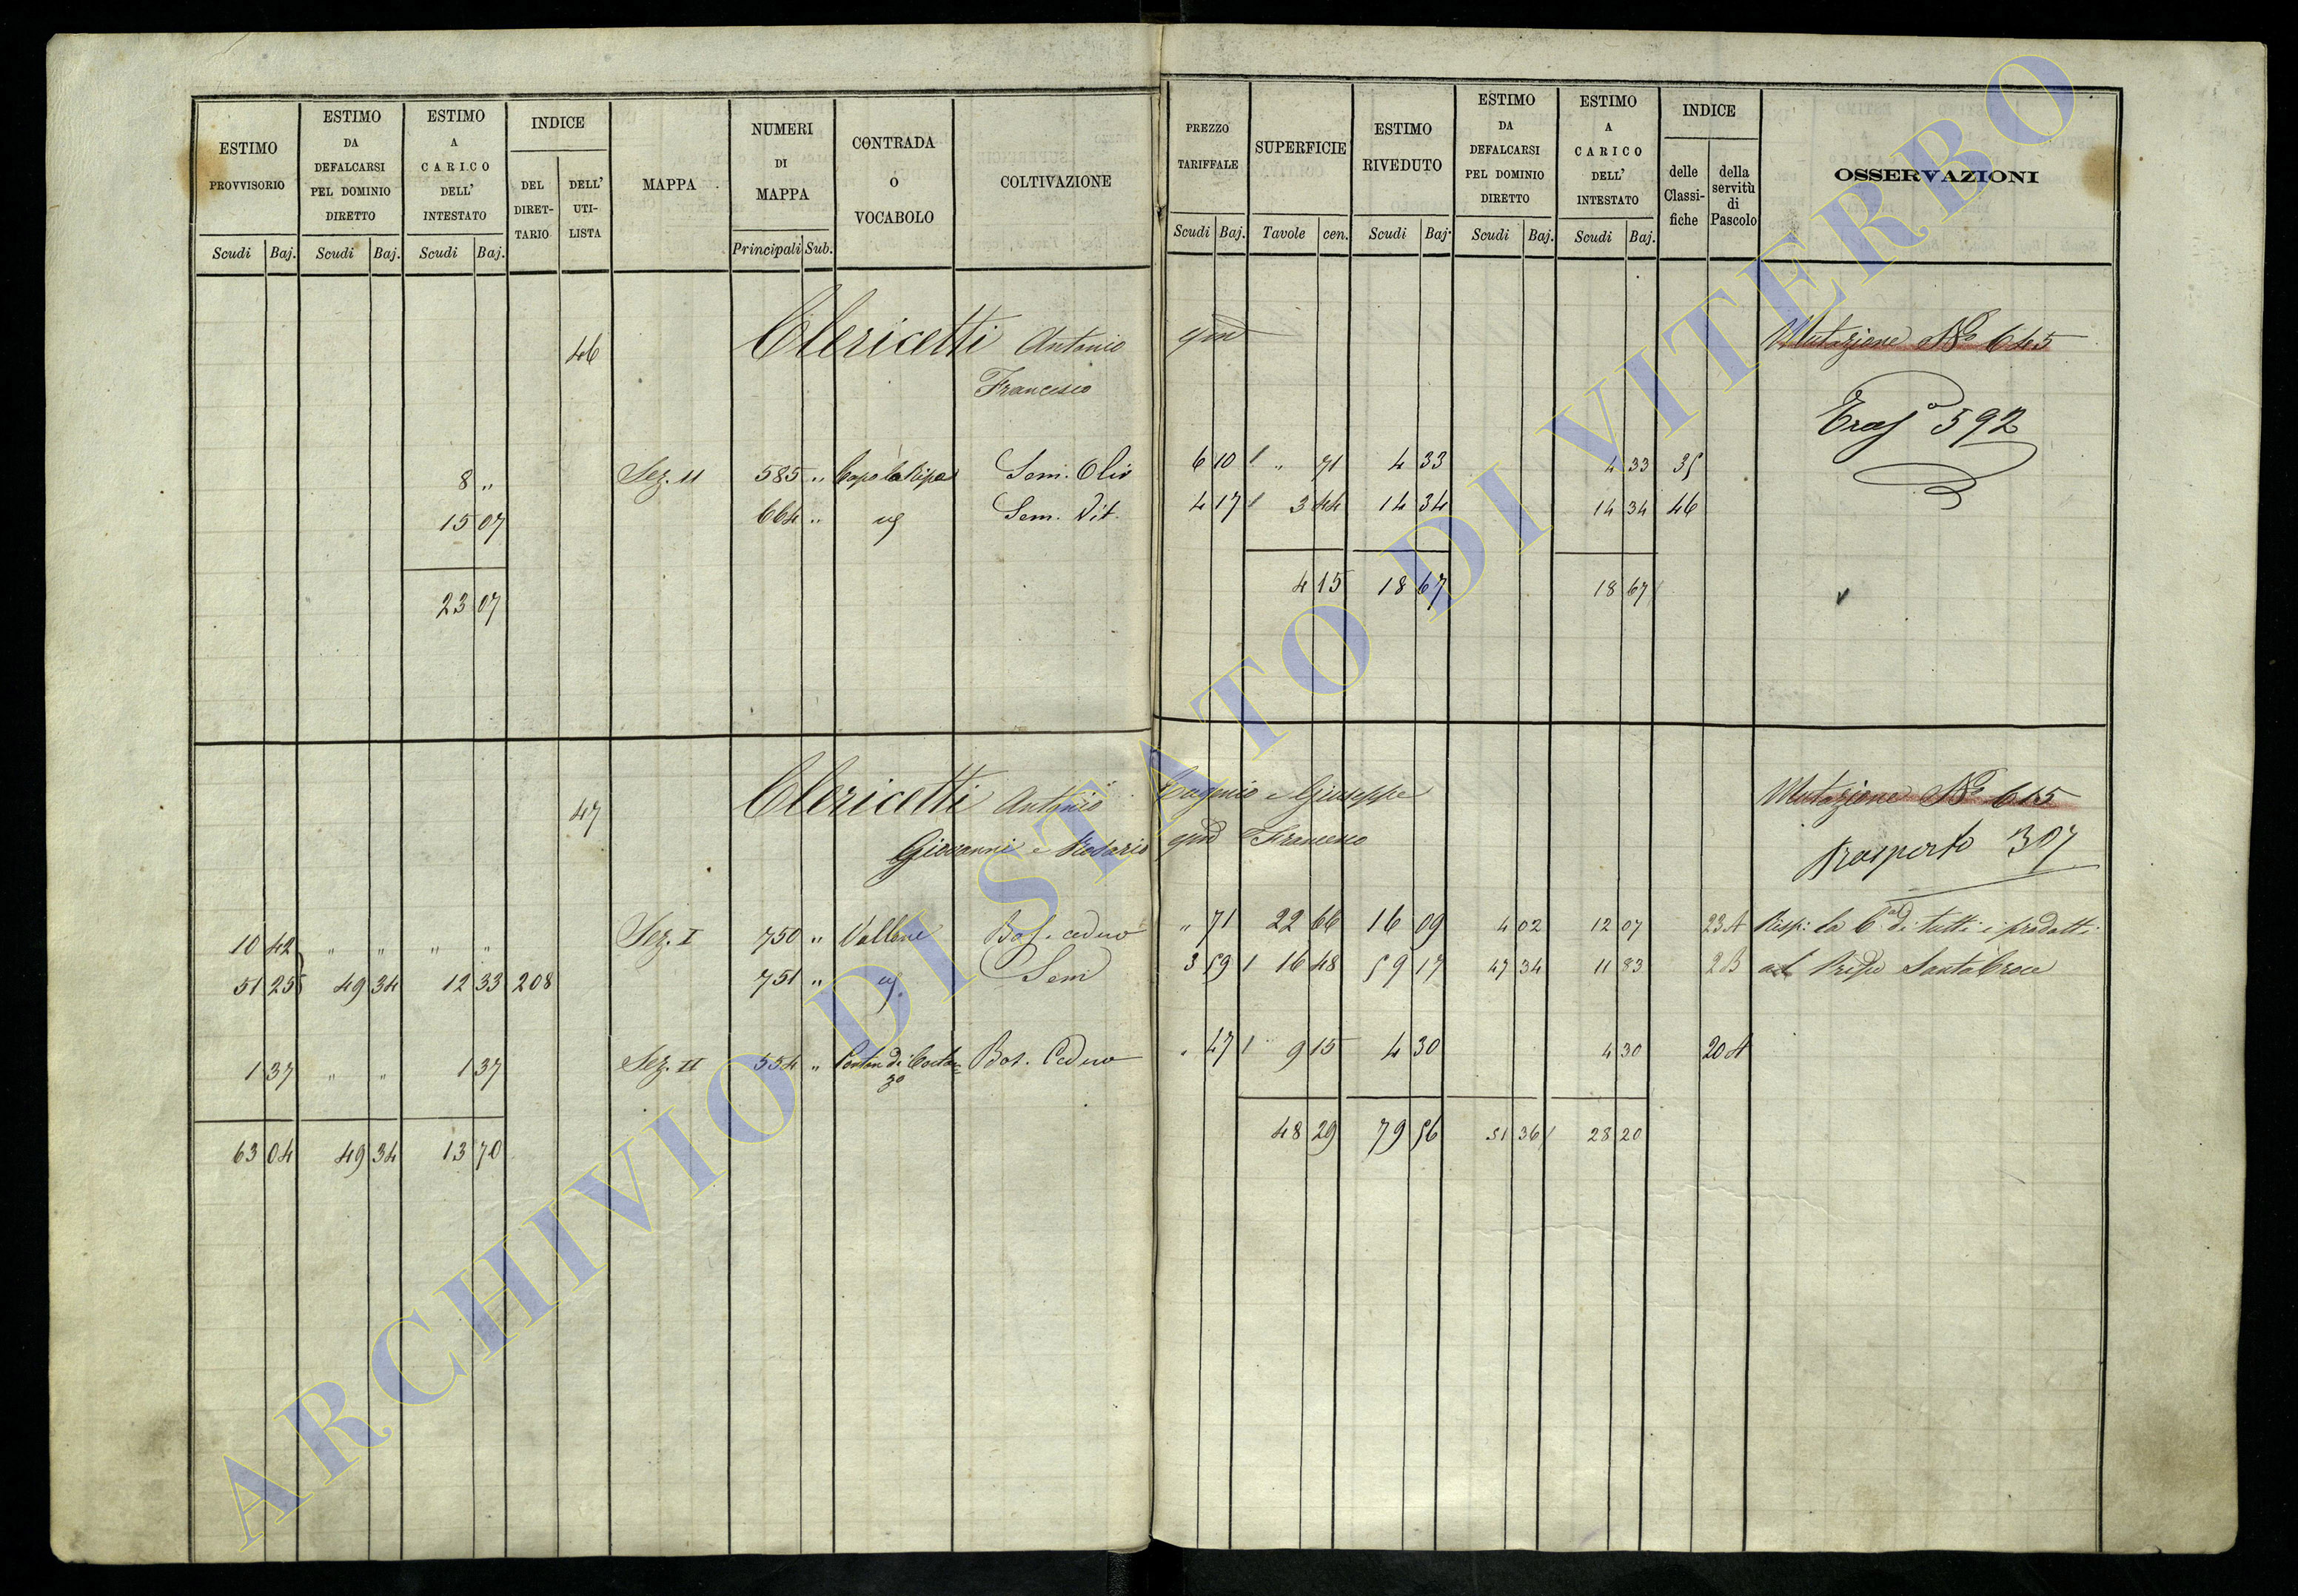 ESTIMO PROVVISORIO Scudi Baj.
ESTIMO DA DEFALCARSI PEL DOMINIO DIRETTO Scudi Baj.
ESTIMO A CARICO DELL' INTESTATO Scudi Baj.
INDICE DEL DIRET-TARIO DELL' UTI-LISTA
MAPPA
NUMERI DI MAPPA Principali Sub.
CONTRADA O VOCABOLO
COLTIVAZIONE
PREZZO TARIFFALE Scudi Baj.
SUPERFICIE Tavole cen.
ESTIMO RIVEDUTO Scudi Baj.
ESTIMO DA DEFALCARSI PEL DOMINIO DIRETTO Scudi Baj.
ESTIMO A CARICO DELL' INTESTATO Scudi Baj.
INDICE delle Classi-fiche della servitù di Pascolo
OSSERVAZIONI
46 Clericetti Antonio qm Mutazione No 645
Francesco
Trasp 592
8 " Sez. II 585 " Capo la Ripa Sem. Oliv 6 10 " 71 4 33 4 33 35
15 07 664 " Sem. Vit. 4 17 3 44 14 34 14 34 46
23 07 4 15 18 67 18 67
47 Clericetti Antonio Eugenio e Giuseppe Mutazione No 615
Giovanni e Rosario qm Francesco
Trasporto 307
10 42 " " " " Sez. I 750 " Vallene Bos. ceduo " 71 22 66 16 09 4 02 12 07 23 A Risp: la 6 di tutti i prodotti
51 25 49 34 12 33 208 751 " Sem 3 59 16 48 59 17 47 34 11 83 2 B Santa Croce
1 37 " " 1 37 Sez. II 554 " Bos. Ceduo " 47 9 15 4 30 4 30 20 A
63 04 49 34 13 70 48 29 79 56 51 36 28 20
ARCHIVIO DI STATO DI VITERBO